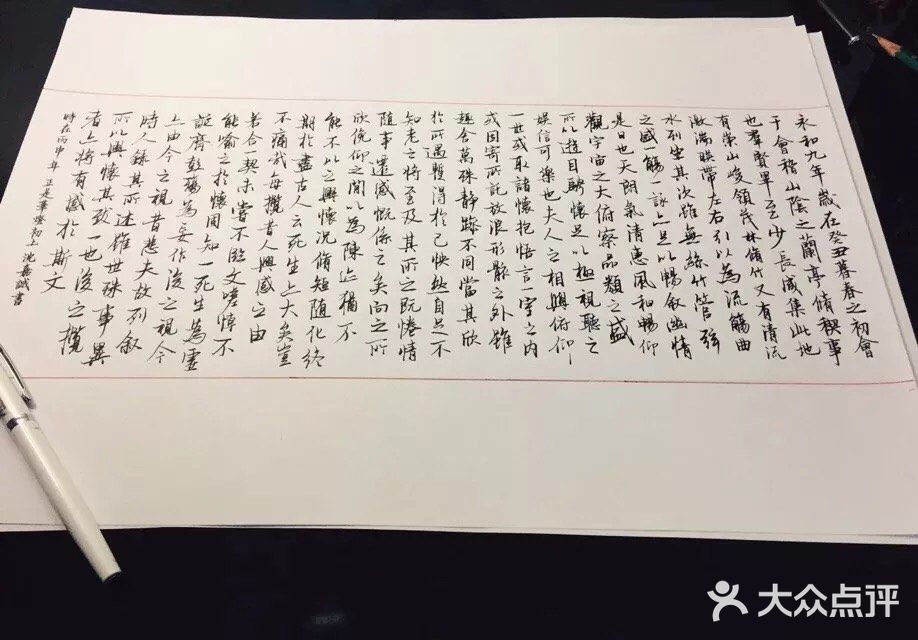 永和九年歲在癸丑暮春之初會
于會稽山陰之蘭亭脩稧事
也羣賢畢至少長咸集此地
有崇山峻領茂林脩竹又有清流
激湍暎帶左右引以為流觴曲
水列坐其次雖無絲竹管弦
之盛一觴一詠亦足以暢叙幽情
是日也天朗氣清惠風和暢仰
觀宇宙之大俯察品類之盛
所以遊目騁懷足以極視聽之
娛信可樂也夫人之相與俯仰
一世或取諸懷抱悟言一室之内
或因寄所託放浪形骸之外雖
趣舍萬殊靜躁不同當其欣
於所遇暫得於己快然自足不
知老之將至及其所之既惓情
隨事遷感慨係之矣向之所
欣俛仰之間以為陳迹猶不
能不以之興懷況脩短隨化終
期於盡古人云死生亦大矣豈
不痛哉每攬昔人興感之由
若合一契未嘗不臨文嗟悼不
能喻之於懷固知一死生為虛
誕齊彭殤為妄作後之視今
亦由今之視昔悲夫故列叙
時人錄其所述雖世殊事異
所以興懷其致一也後之攬
者亦將有感於斯文
時在丙申年正是華燈初上沈嘉誠書
大众点评